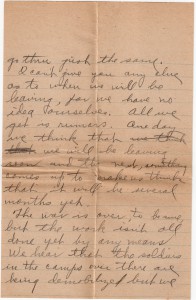 go thru just the same.
I can't give you any clue
as to when we will be
leaving, for we have no
idea ourselves. All we
get is rumors. One day
we think that
we will be leaving
soon and the next, something
comes up to make us think
that it will be several
months yet.
The war is over, to be sure,
but the work isn't all
done yet by any means.
We hear that the soldiers
in the camps over there are
being demobilized but we